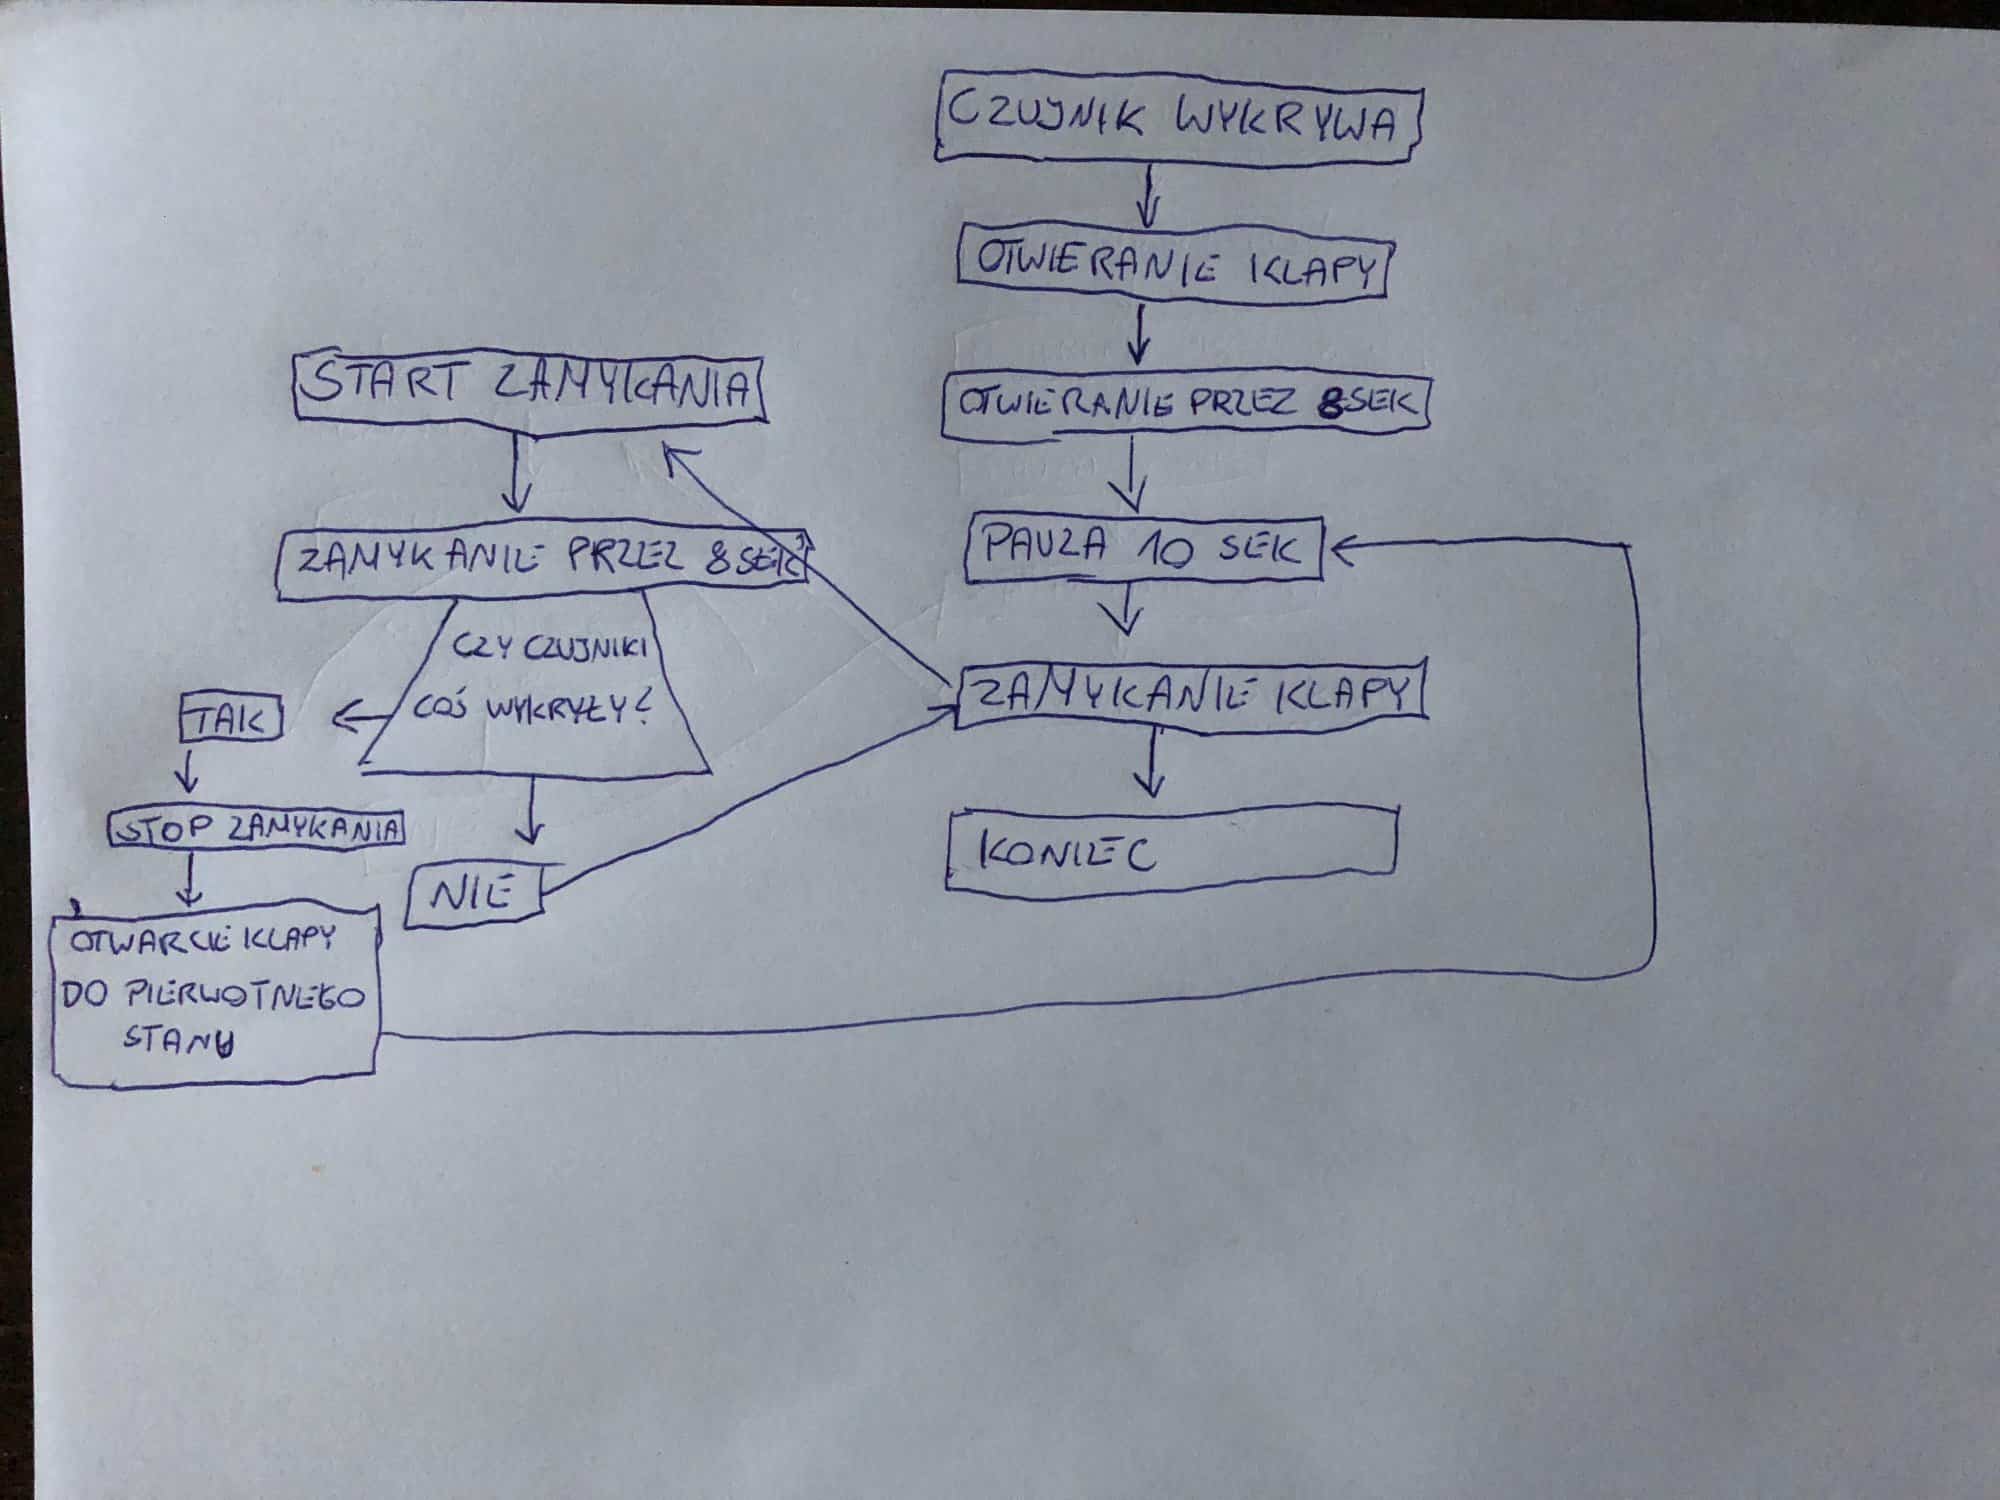 CZUJNIK WYKRYWA
OTWIERANIE KLAPY
OTWIERANIE PRZEZ 8SEK
PAUZA 10 SEK
ZAMYKANIE KLAPY
KONIEC
START ZAMYKANIA
ZAMYKANIE PRZEZ 8SEK
CZY CZUJNIKI
COŚ WYKRYŁY?
TAK
STOP ZAMYKANIA
OTWARCIE KLAPY
DO PIERWOTNEGO
STANU
NIE